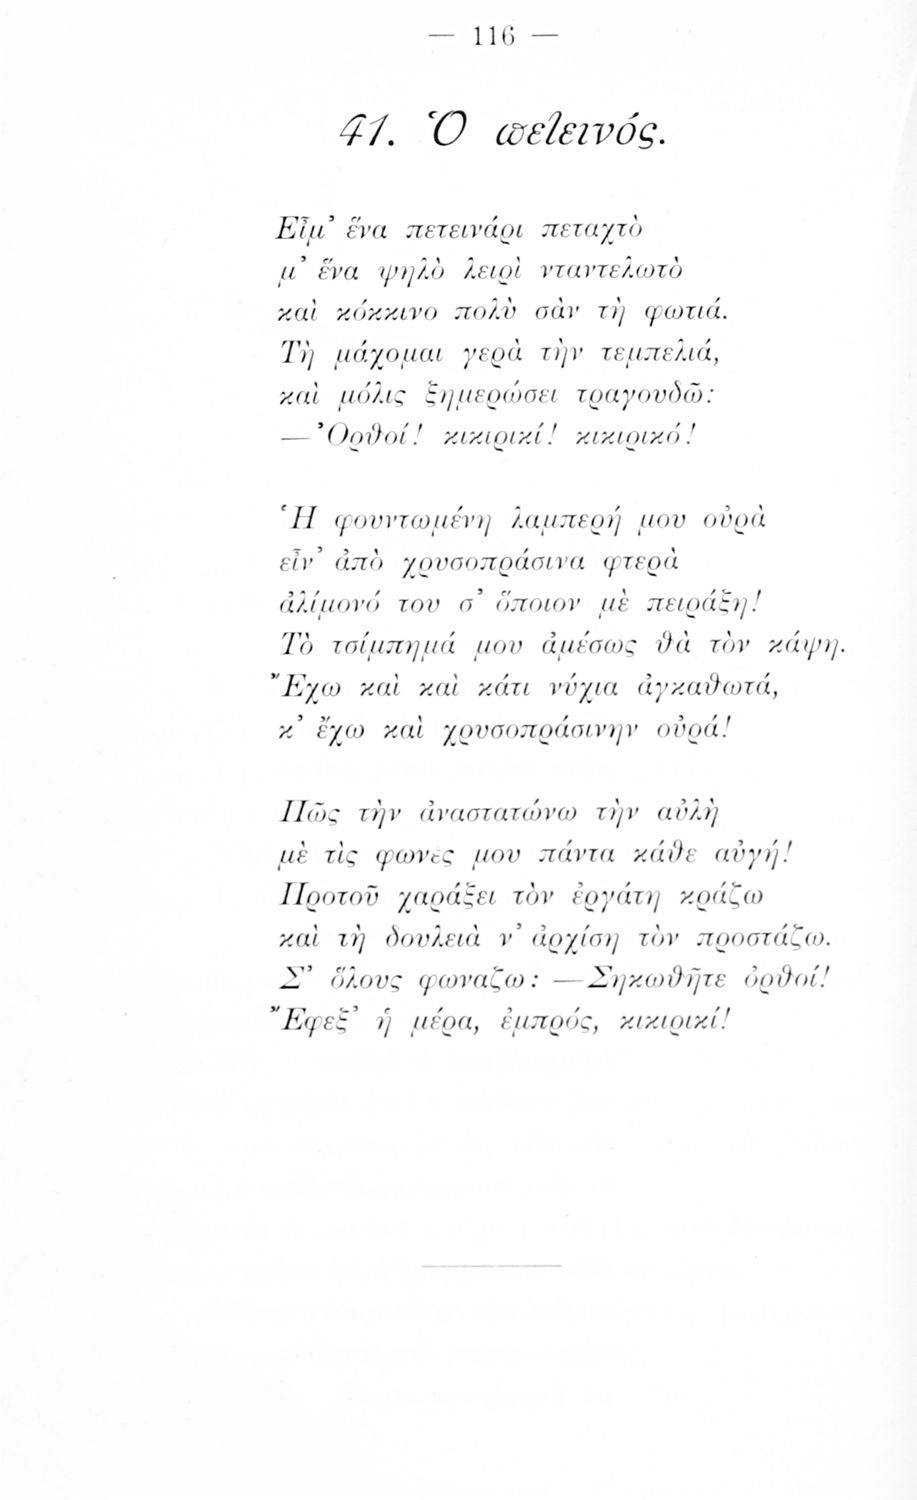 — 116 —
41. Ὁ πετεινός.
Εἶμ’ ἕνα πετεινάρι πεταχτὸ
μ’ ἕνα ψηλὸ λειρὶ νταντελωτὸ
καὶ κόκκινο πολὺ σὰν τὴ φωτιά.
Τὴ μάχομαι γερὰ τὴν τεμπελιά,
καὶ μόλις ξημερώσει τραγουδῶ:
— Ὀρθοί! κικιρικί! κικιρικό!
Ἡ φουντωμένη λαμπερή μου οὐρὰ
εἶν’ ἀπὸ χρυσοπράσινα φτερὰ
ἀλίμονό του σ’ ὅποιον μὲ πειράξῃ!
Τὸ τσίμπημά μου ἀμέσως θὰ τὸν κάψῃ.
Ἔχω καὶ καὶ κάτι νύχια ἀγκαθωτά,
κ’ ἔχω καὶ χρυσοπράσινην οὐρά!
Πῶς τὴν ἀναστατώνω τὴν αὐλὴ
μὲ τὶς φωνὲς μου πάντα κάθε αὐγή!
Προτοῦ χαράξει τὸν ἐργάτη κράζω
καὶ τὴ δουλειὰ ν’ ἀρχίσῃ τὸν προστάζω.
Σ’ ὅλους φωναζω: — Σηκωθῆτε ὀρθοί!
Ἔφεξ’ ἡ μέρα, ἐμπρός, κικιρικί!